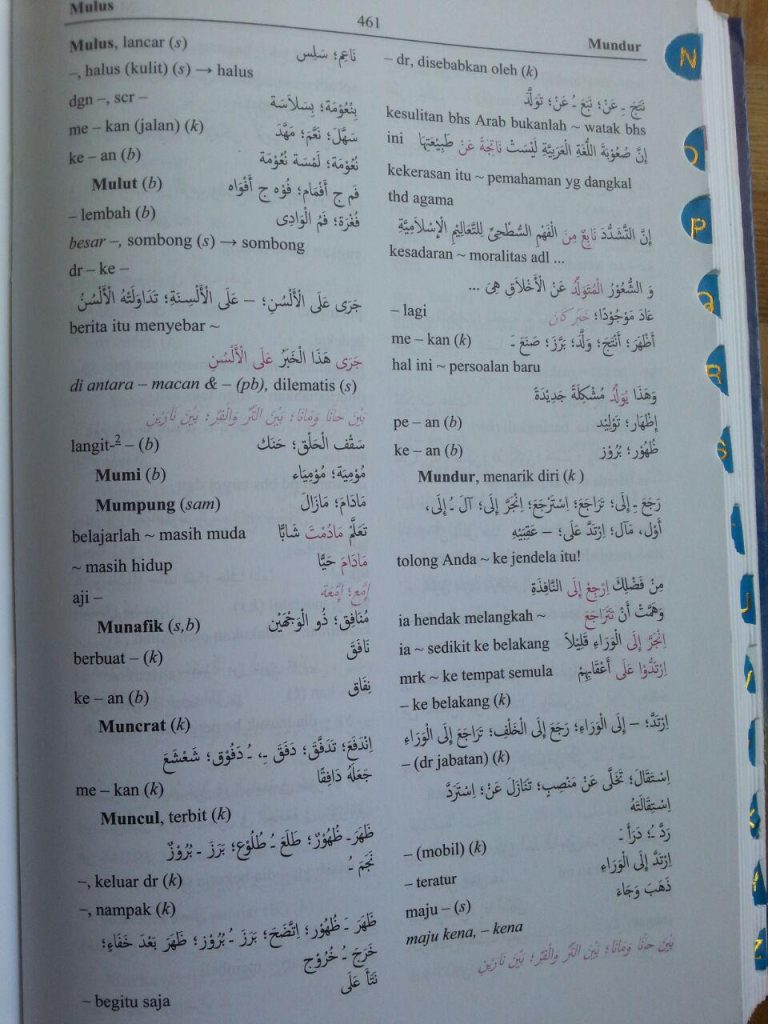 Mulus
461
Mundur
Mulus, lancar (s) نَاعِم؛ سَلِس
–, halus (kulit) (s) → halus
dgn –, scr – بِنُعُوْمَة؛ بِسَلَاسَة
me – kan (jalan) (k) سَهَّلَ؛ نَعَّمَ؛ مَهَّدَ
ke – an (b) نُعُوْمَة؛ لَمْسَة نُعُوْمَة
Mulut (b) فَم ج أَفْمَام؛ فُوْه ج أَفْوَاه
– lembah (b) فُغْرَة؛ فَمُ الْوَادِى
besar –, sombong (s) → sombong
dr – ke –
جَرَى عَلَى الْأَلْسُنِ؛ – عَلَى الْأَلْسِنَةِ؛ تَدَاوَلَتْهُ الْأَلْسُنُ
berita itu menyebar ~
جَرَى هَذَا الْخَبَرُ عَلَى الْأَلْسُنِ
di antara – macan & – (pb), dilematis (s)
بَيْنَ حَانَا وَمَانَا؛ بَيْنَ الْحَرِّ وَالْقَرِّ؛ بَيْنَ نَارَيْنِ
langit-2 – (b) سَقْف الْحَلْق؛ حَنَك
Mumi (b) مُوْمِيَة؛ مُوْمِيَاء
Mumpung (sam) مَادَامَ؛ مَازَالَ
belajarlah ~ masih muda تَعَلَّمْ مَادُمْتَ شَابًّا
~ masih hidup مَادَامَ حَيًّا
aji – إِمَّع؛ إِمَّعَة
Munafik (s,b) مُنَافِق؛ ذُو الْوَجْهَيْن
berbuat – (k) نَافَقَ
ke – an (b) نِفَاق
Muncrat (k)
اِنْدَفَعَ؛ تَدَفَّقَ؛ دَفَقَ ـِ، ـُ دَفُوْق؛ شَعْشَعَ
me – kan (k) جَعَلَهُ دَافِقًا
Muncul, terbit (k)
ظَهَرَ ـَ ظُهُوْرٌ؛ طَلَعَ ـُ طُلُوْع؛ بَرَزَ ـُ بُرُوْزٌ
–, keluar dr (k) نَجَمَ ـُ
–, nampak (k)
ظَهَرَ ـَ ظُهُور؛ اِتَّضَحَ؛ بَرَزَ ـُ بُرُوْز؛ ظَهَرَ بَعْدَ خَفَاءٍ؛
خَرَجَ ـُ خُرُوْج
~ begitu saja نَتَأَ عَلَى
– dr, disebabkan oleh (k)
نَتَجَ ـِ عَنْ؛ نَبَعَ ـُ عَنْ؛ تَوَلَّدَ
kesulitan bhs Arab bukanlah ~ watak bhs
ini إِنَّ صُعُوْبَةَ اللُّغَةِ الْعَرَبِيَّةِ لَيْسَتْ نَاتِجَةً عَنْ طَبِيْعَتِهَا
kekerasan itu ~ pemahaman yg dangkal
thd agama
إِنَّ التَّشَدُّدَ نَابِعٌ مِنَ الْفَهْمِ السُّطْحِيِّ لِلتَّعَالِيْمِ الْإِسْلَامِيَّةِ
kesadaran ~ moralitas adl ...
وَ الشُّعُوْرُ الْمُتَوَلِّدُ عَنِ الْأَخْلَاقِ هِىَ ...
– lagi عَادَ مَوْجُوْدًا؛ خَبَرُ كَانَ
me – kan (k) أَظْهَرَ؛ أَنْتَجَ؛ وَلَّدَ؛ بَرَّزَ؛ صَنَعَ ـَ
hal ini ~ persoalan baru
وَهَذَا يُوَلِّدُ مُشْكِلَةً جَدِيْدَةً
pe – an (b) إِظْهَار؛ تَوْلِيْد
ke – an (b) ظُهُوْر؛ بُرُوْز
Mundur, menarik diri (k )
رَجَعَ ـِ إِلَى؛ تَرَاجَعَ؛ اِسْتَرْجَعَ؛ اِنْجَرَّ إِلَى؛ آلَ ـُ إِلَى،
أَوْل، مَآل؛ اِرْتَدَّ عَلَى؛ – عَقِبَيْهِ
tolong Anda ~ ke jendela itu!
مِنْ فَضْلِكَ اِرْجِعْ إِلَى النَّافِذَةِ
ia hendak melangkah ~ وَهَمَّتْ أَنْ تَتَرَاجَعَ
ia ~ sedikit ke belakang اِنْجَرَّ إِلَى الْوَرَاءِ قَلِيْلاً
mrk ~ ke tempat semula اِرْتَدُّوْا عَلَى أَعْقَابِهِمْ
– ke belakang (k)
اِرْتَدَّ؛ – إِلَى الْوَرَاءِ؛ رَجَعَ إِلَى الْخَلْفِ؛ تَرَاجَعَ إِلَى الْوَرَاءِ
– (dr jabatan) (k)
اِسْتَقَالَ؛ تَخَلَّى عَنْ مَنْصِبٍ؛ تَنَازَلَ عَنْ؛ اِسْتَرَدَّ
اِسْتِقَالَتَهُ
– (mobil) (k) رَدَّ ـُ؛ دَرَأَ ـَ
– teratur اِرْتَدَّ إِلَى الْوَرَاءِ
maju – (s) ذَهَبَ وَجَاءَ
maju kena, – kena
بَيْنَ حَانَا وَمَانَا؛ بَيْنَ الْحَرِّ وَالْقَرِّ؛ بَيْنَ نَارَيْنِ
N
O
P
Q
R
S